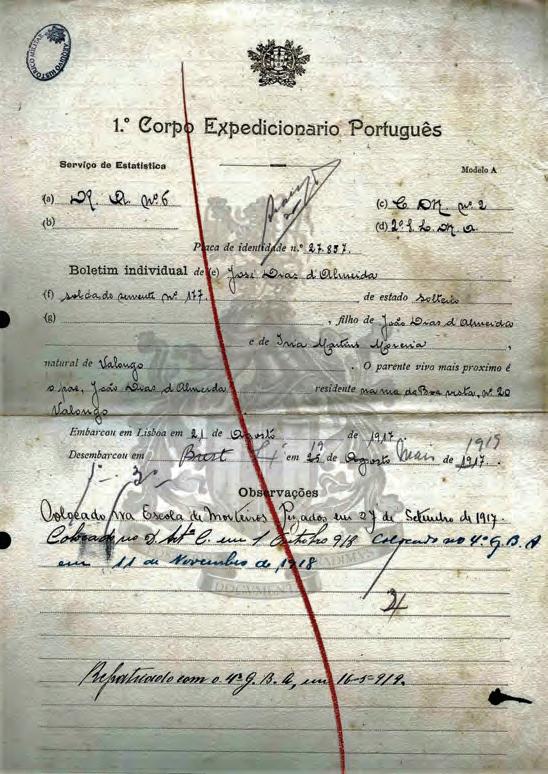 ARQUIVO HISTÓRICO MILITAR
1.º Corpo Expedicionario Português
Serviço de Estatistica
Modelo A
(a) R. A. nº 6 (c) C. nº 2
(b) (d) 2º
Placa de identidade n.º 27.857.
Boletim individual de (e) José Dias d'Almeida
(f) soldado servente nº 177. de estado solteiro
(g) , filho de João Dias d'Almeida
e de Iria Martins Moreira ,
natural de Valongo . O parente vivo mais proximo é
o pae, João Dias d'Almeida residente na rua da Boa vista, nº 20
Valongo
Embarcou em Lisboa em 21 de Agosto de 1917
Desembarcou em Brest em 25 19 de Agosto Maio de 1917. 1919
1º - 3º -
Observações
Colocado na Escola de Morteiros Pesados em 27 de Setembro de 1917.
Colocado no D. em 1 Outubro 918 Colocado no 4º G. B. A
em 11 de Novembro de 1918
DOCUMENTO
Repatriado com o 4º G. B. A, em 16-5-919.